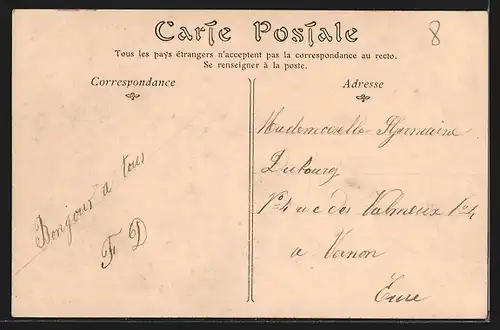 Carte Postale
8
Tous les pays étrangers n'acceptent pas la correspondance au recto.
Se renseigner à la poste.
Correspondance
Adresse
Bonjour a tous
F D
Mademoiselle Germaine
Dubourg
No 4 rue des Valmeux No 4
a Vernon
Eure